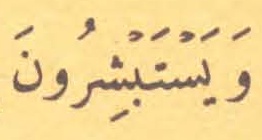 وَيَسْتَبْشِرُونَ